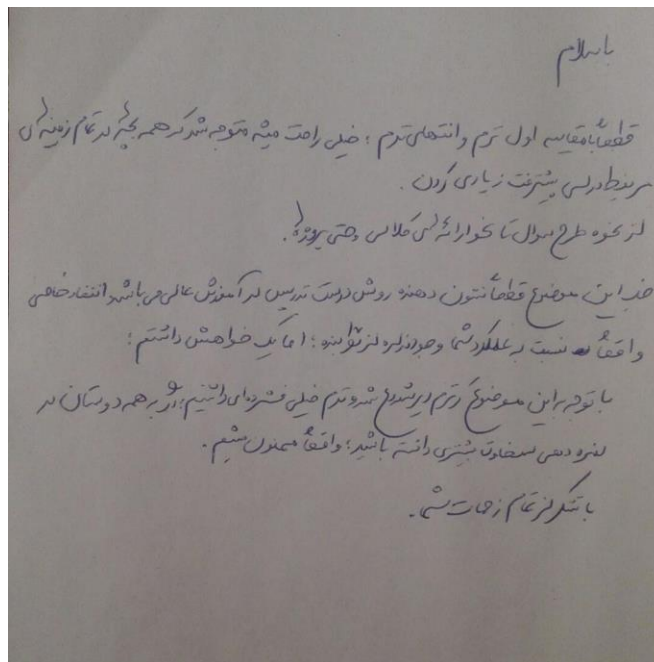 با سلام
قطعاً با مقایسه اول ترم و انتهای ترم ؛ خیلی راحت میشه متوجه شد که همه بچه ها در تمام زمینه های
مرتبط با درس پیشرفت زیادی کردن .
از نحوه طرح سوال تا نحوه ارائه کلاسی و حتی پروژه ها .
خب این موضوع قطعاً نشون دهنده روش درست تدریس در آموزش عالی می باشد و انتقاد خاصی
واقعاً نسبت به عملکرد شما وجود نداره از نظر بنده ؛ اما یک خواهش داشتم :
با توجه به این موضوع که ترم دیر شروع شد و ترم خیلی فشرده ای داشتیم ؛ اگر به همه دوستان در
نمره دهی سخاوت بیشتری داشته باشید ؛ واقعاً ممنون میشیم .
با تشکر از تمام زحمات شما .